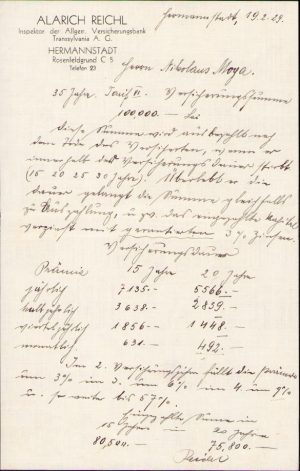 ALARICH REICHL
Inspektor der Allgem. Versicherungsbank
Transsylvania A. G.
HERMANNSTADT
Rosenfeldgrund C 5
Telefon 23
Hermannstadt, 19.2.29.
Herrn Nikolaus Moya.
35 Jahre Tarif II. Versicherungssumme
100,000.— Lei
Diese Summe wird ausbezahlt nach
dem Tode des Versicherten, wenn er
innerhalb der Versicherungsdauer stirbt
(15 20 25 30 Jahre). Überlebt er die
Dauer gelangt die Summe gleichfalls
zu Auszahlung, u. zw. das eingezahlte Kapital
verzinst mit garantierten 3% Zinsen
Versicherungsdauer
Prämie 15 Jahre 20 Jahre
jährlich 7135.— 5566.—
halbjährlich 3638.— 2839.—
vierteljährlich 1856.— 1448.—
monatlich 631.— 492.—
Im 2. Versicherungsjahr fällt die Prämie
um 3% im 3. um 6% im 4. um 9%
u. so weiter bis 57%.
Eingezahlte Summe in
15 Jahren 20 Jahre
80,500.— 75,800.—
Reichl